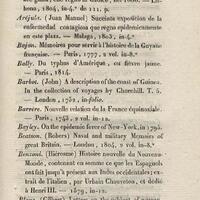 Londres, 1804, in-4.° de 111. p.
Aréjula. (Juan Manuel) Succinta exposition de la
enfermedad contagiosa que regno epidemicamente
en este plaza. — Malaga, 1803, in-4.°
Bajon. Mémoires pour servir à l'histoire de la Guyane
française. — Paris, 1777, 2 vol. in-8.°
Bally. Du typhus d'Amérique, ou fièvre jaune.
— Paris, 1814.
Barbot. (John) A description of the coast of Guinea.
In the collection of voyages by Churchill. T. 5.
— London, 1732, in-folio.
Barrère. Nouvelle relation de la France équinoxiale.
— Paris, 1743, 2 vol. in-12.
Bayley. On the epidemic fever of New-York, in 1795.
Beatson. (Robers) Naval and military Memoirs of
great Britain. — London, 1804, 2 vol. in-8.°
Benzoni. (Hiérosme) Histoire nouvelle du Nouveau-
Monde, contenant en somme ce que les Espagnols
ont fait jusqu'à présent aux Indes occidentales; ex-
trait de l'italien, par Urbain Chauveton, et dédié
à Henri III. — 1579, in-12.